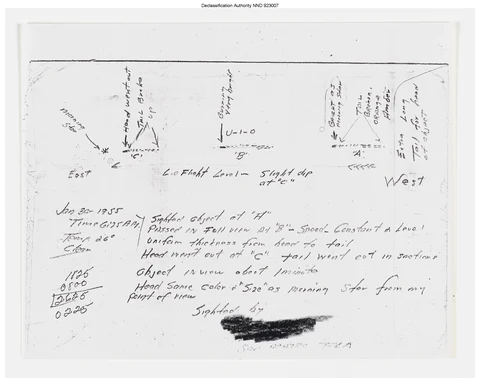 Declassification Authority NND 923007
Morning
Star
Head went out
Tail Broke
up
"C"
Burning
Very Bright
U-1-0
"B"
Bright as
morning star
Tail
orange
"A"
Extra Long
Tail for head
of object
East
Flight Level - Slight dip
at "C"
West
Jan 30-1955
Time 6:25 A.M.
Temp 26°
Clear
Sighted object at "A"
Passed in Full view At "B" - Speed Constant & Level
Uniform thickness from head to tail
Head went out at "C" tail went out in sections
Object in view about 1 minute
Head Same color & "Size" as morning Star from my
point of view
1825
0500
2625
0225
Sighted by